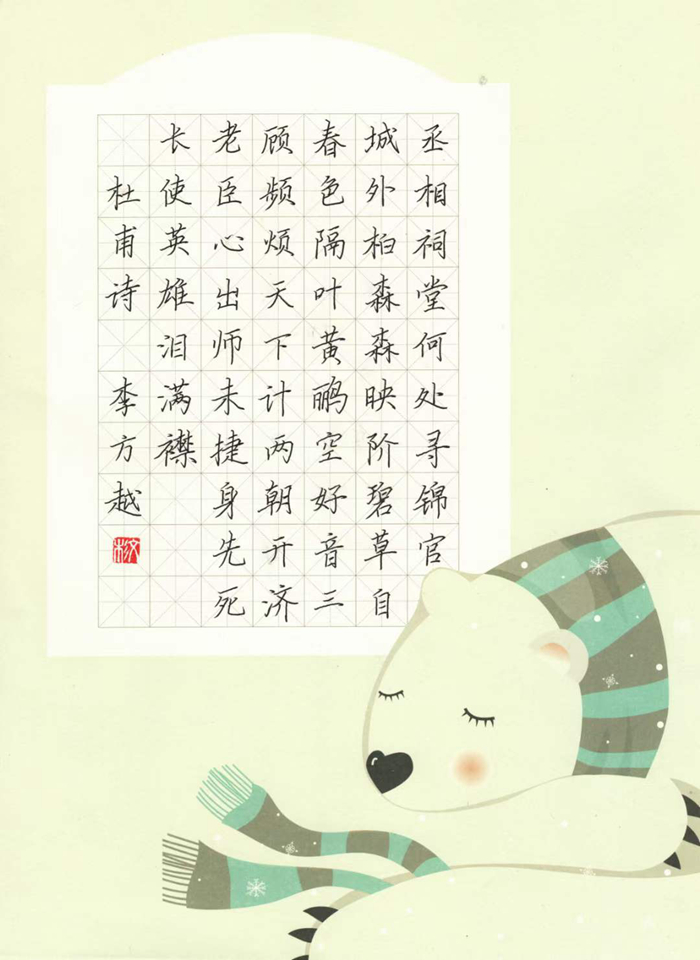 丞相祠堂何处寻锦官
城外柏森森映阶碧草自
春色隔叶黄鹂空好音三
顾频烦天下计两朝开济
老臣心出师未捷身先死
长使英雄泪满襟
杜甫诗 李方越